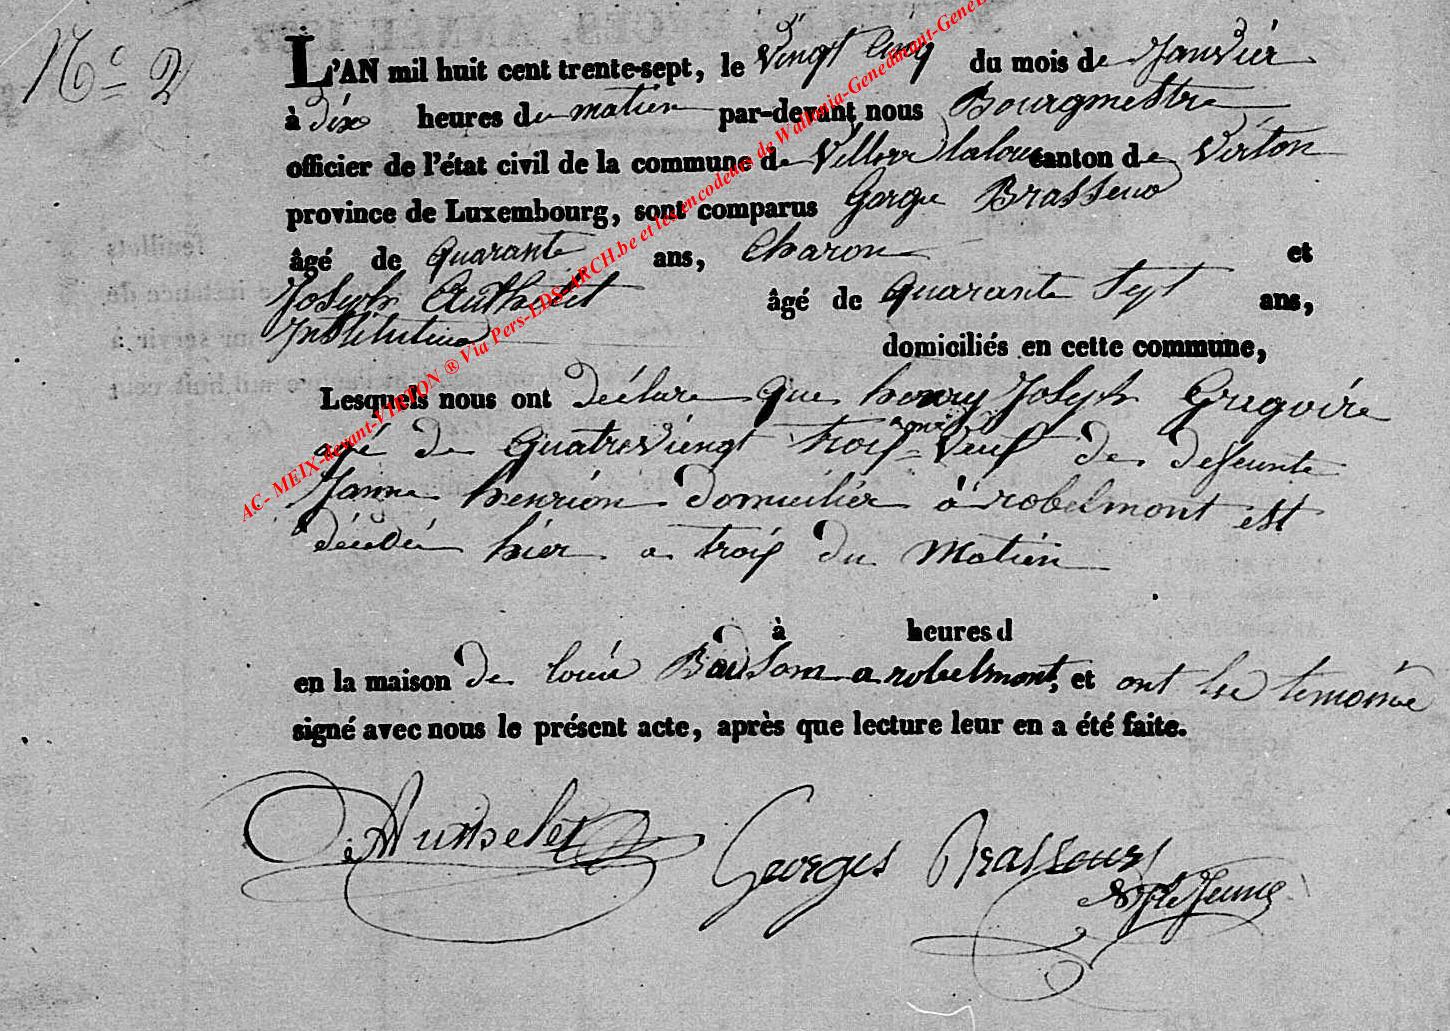 Nº 2
L'AN mil huit cent trente-sept, le vingt cinq du mois de Janvier
à dix heures du matien par-devant nous Bourgmestre
officier de l'état civil de la commune de Villers laloue canton de Virton
province de Luxembourg, sont comparus Gorge Brasseur
âgé de quarante ans, Charon et
Joseph âgé de quarante sept ans,
Instituteur domiciliés en cette commune,
Lesquels nous ont déclare que henry Joseph Gregoire
agé de quatreviengt trois années veuf de defeunte
Janne henrion domicilier à robelmont est
décédée hier a trois du matien
à heures d
en la maison de louis a robelmont, et ont les temoins
signé avec nous le présent acte, après que lecture leur en a été faite.
Georges Brasseur
AC- MEIX-devant-VIRTON ® Via Pers-LDS-ARCH.be et les encodeurs de Wallonia-Genedinant-GeneB